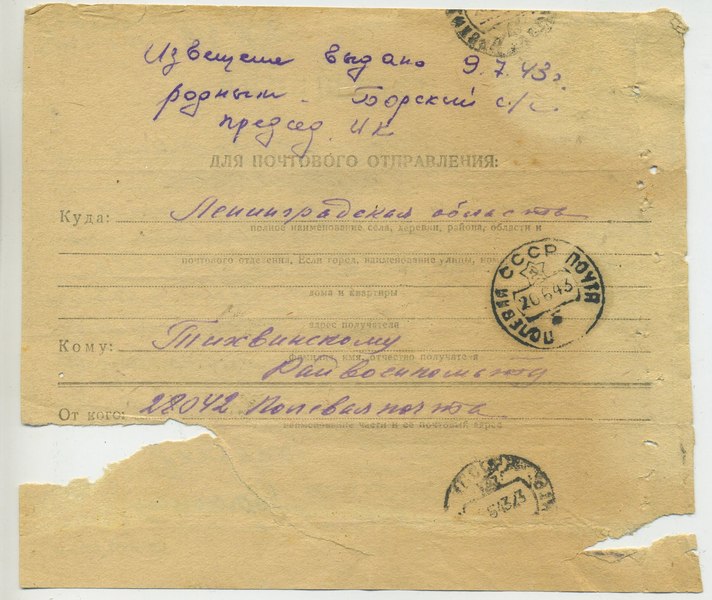 Извещение выдано 9.7.43г.
родным. Борский с/с.
председ. ИК
ДЛЯ ПОЧТОВОГО ОТПРАВЛЕНИЯ:
Куда: Ленинградская область
полное наименование села, деревни, района, области и
почтового отделения. Если город, наименование улицы,
дома и квартиры
адрес получателя
Кому: Тихвинскому
фамилия, имя, отчество получателя
Райвоенкомату
От кого: 28042 Полевая почта
наименование части и её почтовый адрес
ПОЛЕВАЯ СССР ПОЧТА
20.6.43